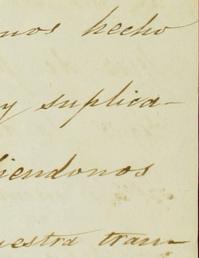 mos hecho
y suplica-
iendonos
uestra tran-